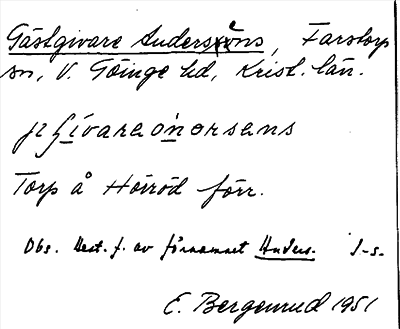 Gästgivare Anders, Farstorp
sn, V. Göinge hd, Krist. län.
Torp å Höiröd förr.
Obs. Best. f. av förnamnet Anders. J-s.
E. Bergenrud 1951